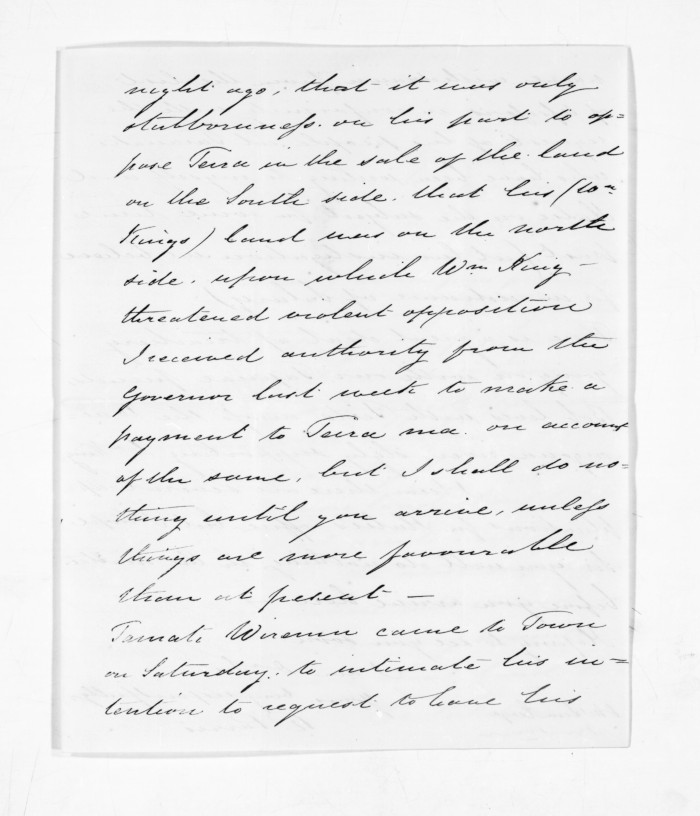 night ago, that it was only
stubbornness. on his part to op=
pose Teira in the sale of the land
on the South side. that his (Wm
Kings) land was on the north
side. upon which Wm King
threatened violent opposition
I received authority from the
Governor last week to make a
payment to Teira ma. on account
of the same, but I shall do no=
thing until you arrive, unless
things are more favourable
than at present —
Tamati Wiremu came to Town
on Saturday. to intimate his in=
tention to request to have his